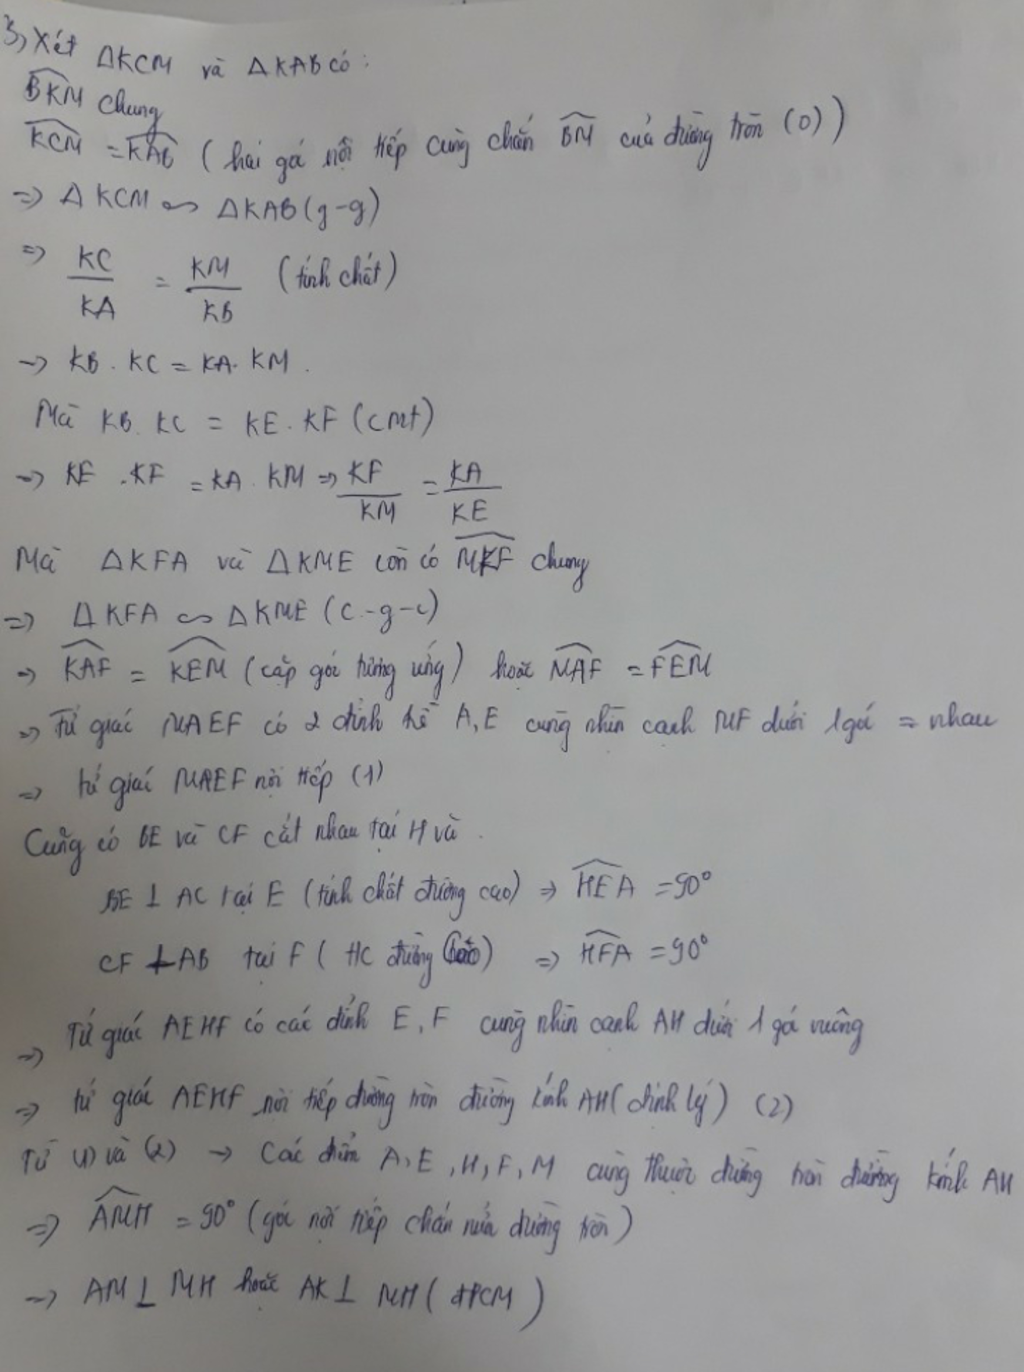 3, Xét ΔKCM và ΔKAB có:
BKM chung
KCM = KAB (hai gó nội tiếp cùng chắn BM của đường tròn (O))
=> ΔKCM ∽ ΔKAB (g-g)
=> KC/KA = KM/KB (tính chất)
-> KB . KC = KA. KM .
Mà KB. KC = KE. KF (cmt)
-> KE . KF = KA . KM => KF/KM = KA/KE
Mà ΔKFA và ΔKME còn có MKF chung
=> ΔKFA ∽ ΔKME (c-g-c)
-> KAF = KEM (cặp góc tương ứng) hoặc MAF = FEM
=> Tứ giác MAEF có 2 đỉnh kề A, E cùng nhìn cạnh MF dưới 1 gó = nhau
=> tứ giác MAEF nội tiếp (1)
Cũng có BE và CF cắt nhau tại H và .
BE ⊥ AC tại E (tính chất đường cao) => HEA = 90°
CF ⊥ AB tại F ( HC đường cao) => HFA = 90°
=> Tứ giác AEHF có các đỉnh E, F cùng nhìn cạnh AH dưới 1 gó vuông
=> tứ giác AEHF nội tiếp đường tròn đường kính AH (định lý) (2)
Từ (1) và (2) -> Các điểm A, E, H, F, M cùng thuộc đường tròn đường kính AH
=> AMH = 90° (góc nội tiếp chắn nửa đường tròn)
-> AM ⊥ MH hoặc AK ⊥ MH ( ĐPCM )